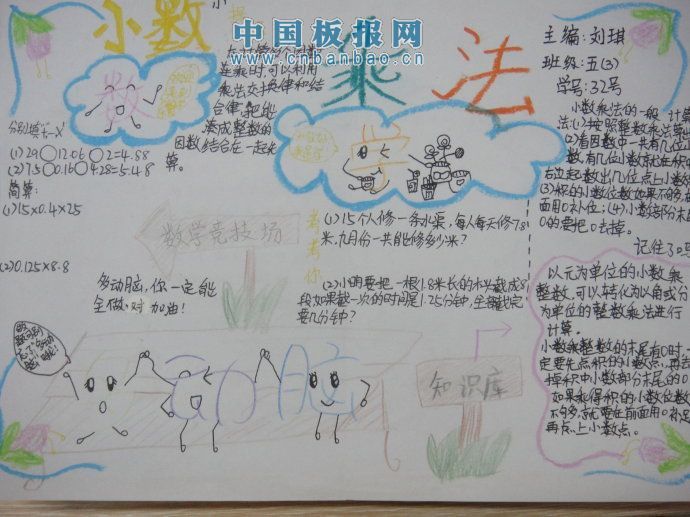 小数
乘法
中国板报网
www.cnbanbao.cn
主编：刘琪
班级：五(3)
学号：32号
连乘时，可以利用
乘法交换律和结
合律，把能
凑成整数的
因数结合在一起来
算。
数
学
(1) 29○12.06○2=4.88
(2) 7.5○0.16○428=5.48
简算：
(1) 15×0.4×25
(2) 0.125×8.8
数学竞技场
多动脑，你一定能
全做对 加油！
考考你
(1) 15个人修一条水渠，每人每天修7.8
米，九月份一共能修多少米？
(2) 小明要把一根1.8米长的木头截成8
段如果截一次的时间是1.25分钟，全部截完
要几分钟？
小数乘法的一般计算
法：(1)按照整数乘法算
(2)看因数中一共有几位
数，有几位小数就从积的
右边起数出几位点上小数
(3)积的小数位数如果不够，在
面用0补位；(4)小数
0的要把0去掉。
以元为单位的小数乘
整数，可以转化为以角或分
为单位的整数乘法进行
计算。
小数乘整数的末尾有0时，一
定要先点积的小数点，再去
掉积中小数部分末尾的0
如果乘得积的小数位数
不够多，就要在前面用0补足
再点上小数点。
动脑
知识库